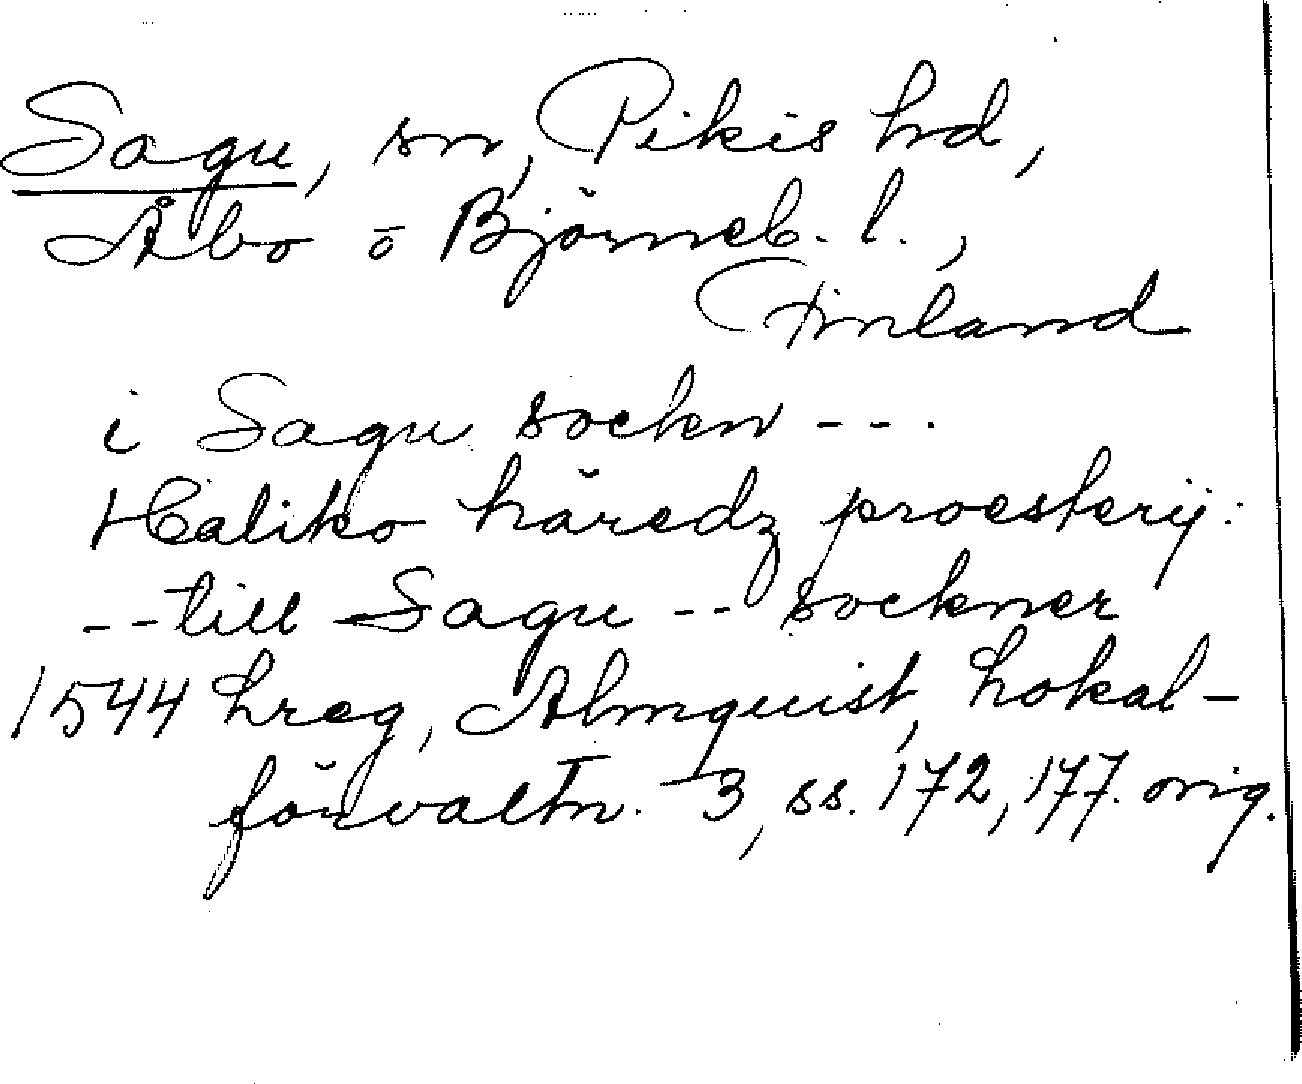 Sagu, sn, Pikis hd,
Åbo o Björneb. l.,
Finland
i Sagu sockn ---.
Haliko häredz proesterij:
-- till Sagu -- sockner
1544 hreg, Almquist, Lokal-
förvaltn. 3, ss. 172, 177. orig.